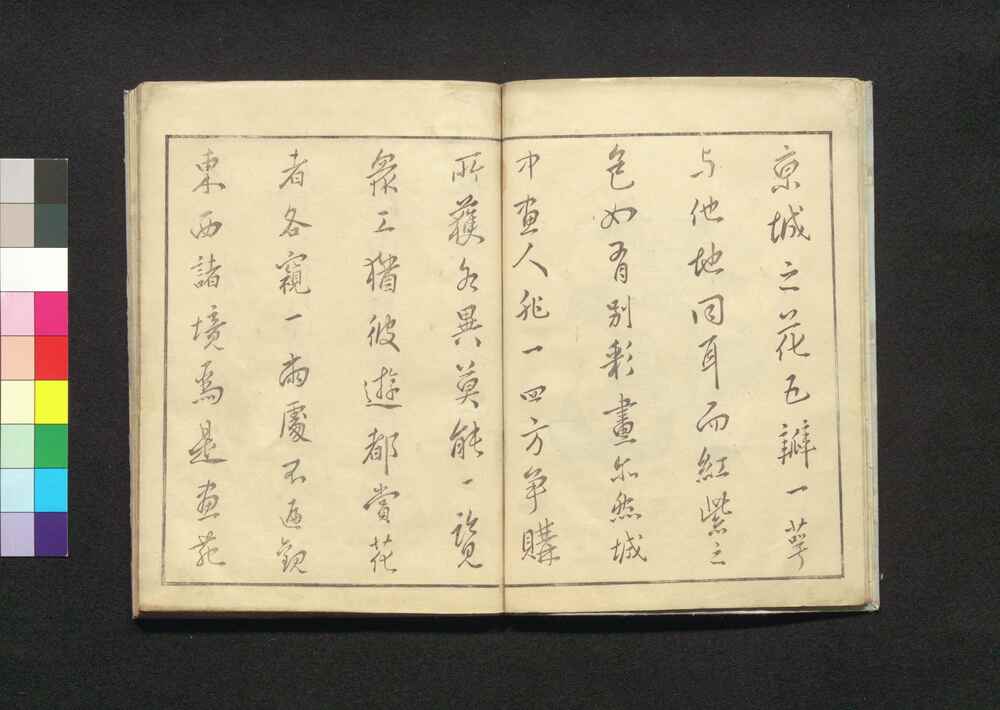 京城之花五瓣一萼
与他地同耳而紅紫之
色如有別彩畫亦然城
中画人非一四方争購
所獲各異莫能一覧
衆工猶彼遊都賞花
者各窺一両處不遍観
東西諸境焉是画苑